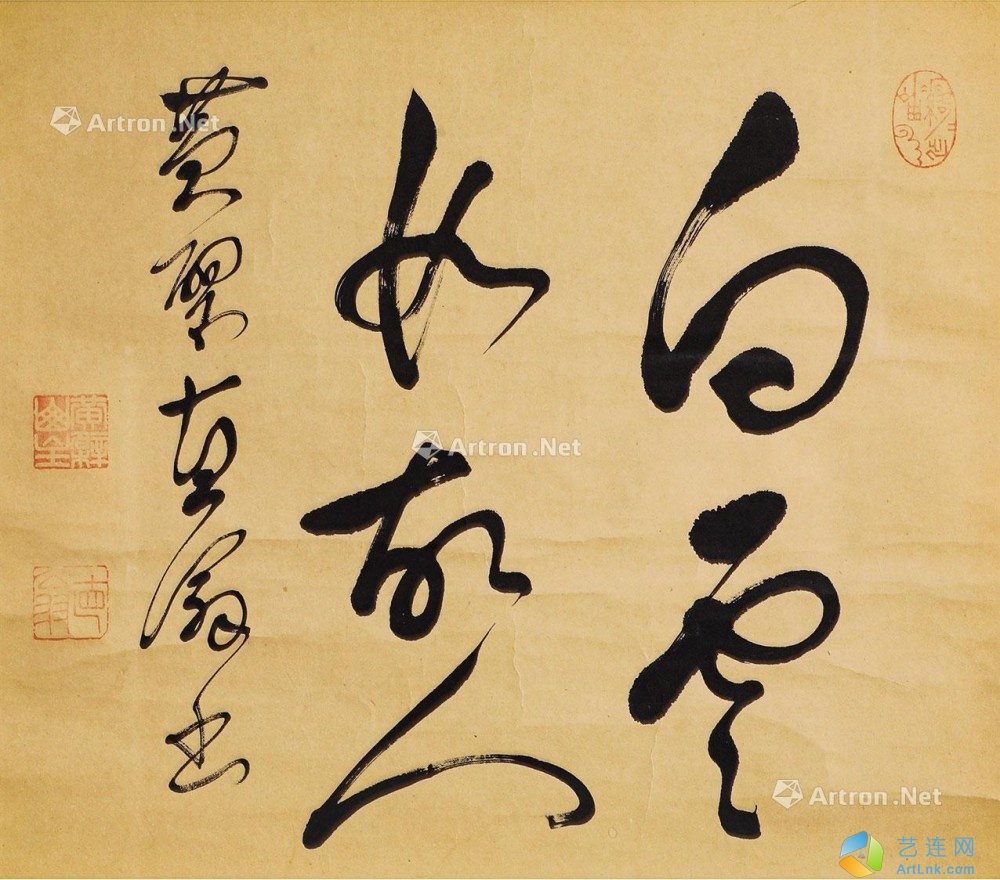 白雲
如故人
黄檗直翁書
Artron.Net
Artron.Net
Artron.Net
艺连网
ArtLnk.com